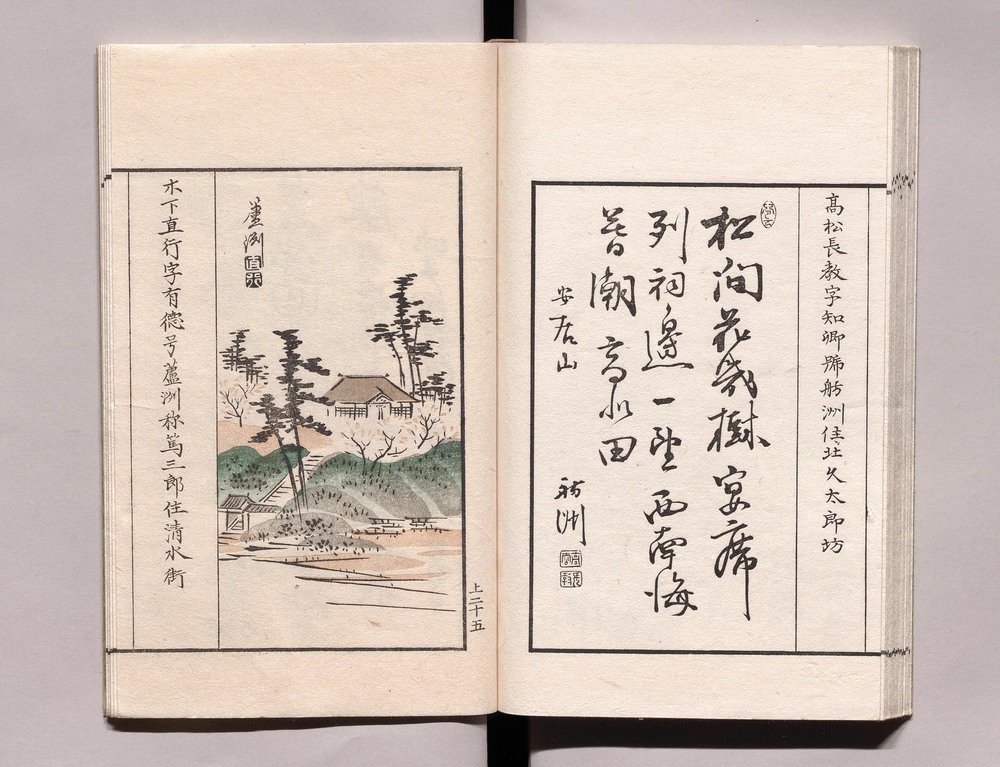 高松長教字知卿號舫洲住北久太郎坊
松間花幾樹宴席
列祠邊一望西南海
昔潮高水田
安居山
舫洲
蘆洲
木下直行字有德号蘆洲称篤三郎住清水街
上二十五